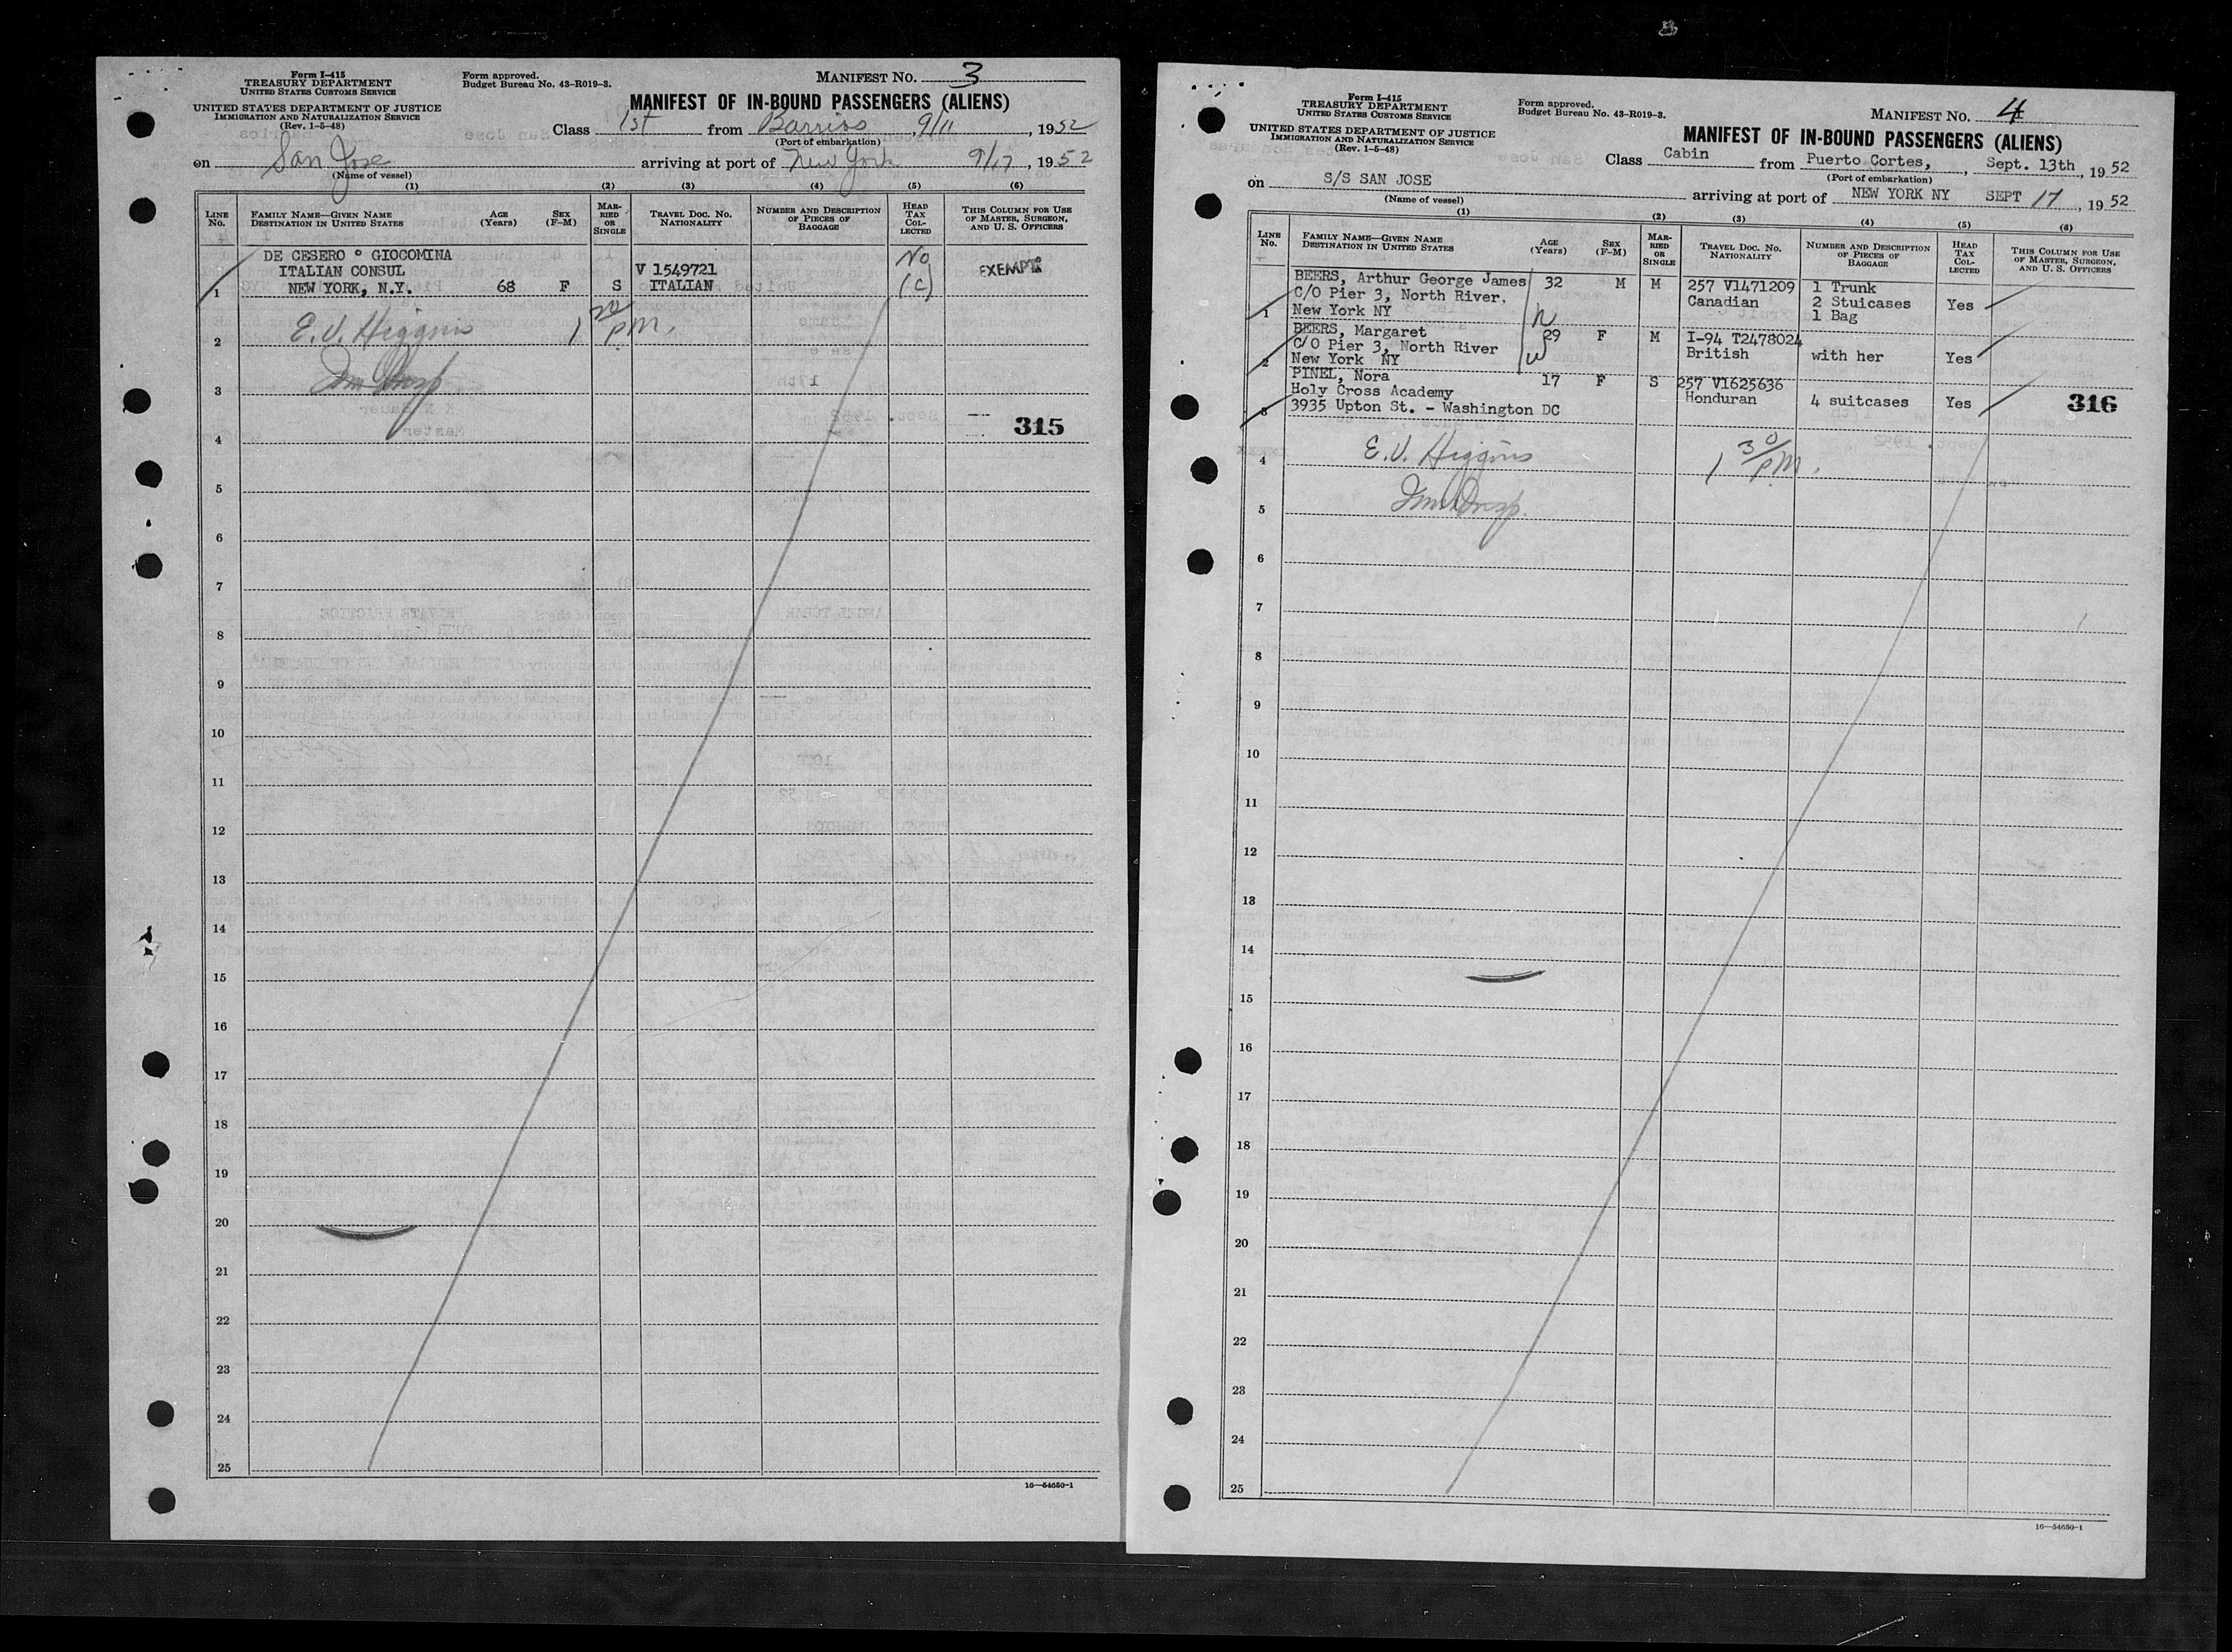 Form I-415
TREASURY DEPARTMENT
UNITED STATES CUSTOMS SERVICE
UNITED STATES DEPARTMENT OF JUSTICE
IMMIGRATION AND NATURALIZATION SERVICE
(Rev. 1-5-48)
Form approved.
Budget Bureau No. 43-R019-3.
MANIFEST NO. 3
MANIFEST OF IN-BOUND PASSENGERS (ALIENS)
Class 1st from Barrios, 9/11, 1952
(Port of embarkation)
on San Jose arriving at port of New York 9/17, 1952
(Name of vessel)
(1) (2) (3) (4) (5) (6)
LINE NO. FAMILY NAME—GIVEN NAME DESTINATION IN UNITED STATES AGE (Years) SEX (F-M) MARRIED OR SINGLE TRAVEL DOC. NO. NATIONALITY NUMBER AND DESCRIPTION OF PIECES OF BAGGAGE HEAD TAX COLLECTED THIS COLUMN FOR USE OF MASTER, SURGEON, AND U. S. OFFICERS
DE CESERO ° GIOCOMINA No
ITALIAN CONSUL V 1549721 EXEMPT
1 NEW YORK, N.Y. 68 F S ITALIAN (C)
2 E.V. Higgins 1 PM.
3
315
4
5
6
7
8
9
10
11
12
13
14
15
16
17
18
19
20
21
22
23
24
25
16—54650-1
Form I-415
TREASURY DEPARTMENT
UNITED STATES CUSTOMS SERVICE
UNITED STATES DEPARTMENT OF JUSTICE
IMMIGRATION AND NATURALIZATION SERVICE
(Rev. 1-5-48)
Form approved.
Budget Bureau No. 43-R019-3.
MANIFEST NO. 4
MANIFEST OF IN-BOUND PASSENGERS (ALIENS)
Class Cabin from Puerto Cortes, Sept. 13th, 1952
(Port of embarkation)
on S/S SAN JOSE arriving at port of NEW YORK NY SEPT 17, 1952
(Name of vessel)
(1) (2) (3) (4) (5) (6)
LINE NO. FAMILY NAME—GIVEN NAME DESTINATION IN UNITED STATES AGE (Years) SEX (F-M) MARRIED OR SINGLE TRAVEL DOC. NO. NATIONALITY NUMBER AND DESCRIPTION OF PIECES OF BAGGAGE HEAD TAX COLLECTED THIS COLUMN FOR USE OF MASTER, SURGEON, AND U. S. OFFICERS
BEERS, Arthur George James 32 M M 257 V1471209 1 Trunk
C/O Pier 3, North River. Canadian 2 Stuicases Yes
1 New York NY 1 Bag
BEERS, Margaret 29 F M I-94 T2478024
C/O Pier 3, North River British with her Yes
2 New York NY
PINEL, Nora 17 F S 257 V1625636
Holy Cross Academy Honduran 4 suitcases Yes
3 3935 Upton St. - Washington DC
316
4 E.V. Higgins 1 30 PM.
5
6
7
8
9
10
11
12
13
14
15
16
17
18
19
20
21
22
23
24
25
16—54650-1